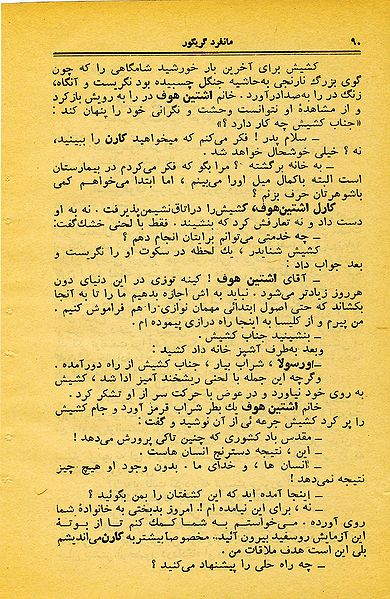 ۹۰
مانفرد گریگور
کشیش برای آخرین بار خورشید شامگاهی را که چون
گوی بزرگ نارنجی به‌حاشیه جنگل چسبیده بود نگریست و آنگاه،
زنگ در را به‌صدادرآورد . خانم اشتین هوف در را به رویش بازکرد
و از مشاهدهٔ او نتوانست وحشت و نگرانی خود را پنهان کند :
«جناب کشیش چه کار دارد ؟»
ــ سلام پدر ! فکر می‌کنم که میخواهید کارن را ببینید،
نه ؟ خیلی خوشحال خواهد شد .
ــ به خانه برگشته ؟ مرا بگو که فکر می‌کردم در بیمارستان
است البته باکمال میل اورا می‌بینم ، اما ابتدا می‌خواهم کمی
باشوهرتان حرف بزنم ؟
کارل اشتین‌هوف، کشیش را دراتاق‌نشیمن‌پذیرفت . نه به او
دست داد و نه تعارفش کرد که بنشیند . فقط با لحنی خشک‌گفت:
ــ چه خدمتی می‌توانم برایتان انجام دهم ؟
کشیش شنایدر ، یک لحظه در سکوت او را نگریست و
بعد جواب داد :
ــ آقای اشتین هوف ! کینه توزی در این دنیای دون
هرروز زیادتر می‌شود . نباید به اش اجازه بدهیم ما را تا به آنجا
بکشاند که حتی اصول ابتدائی مهمان نوازی را هم فراموش کنیم .
من پیرم و از کلیسا به اینجا راه درازی پیموده ام .
ــ بنشینید جناب کشیش .
وبعد به‌طرف آشپز خانه داد کشید :
ــ اورسولا ، شراب بیار ، جناب کشیش از راه دورآمده .
وگرچه این جمله با لحنی ریشخند آمیز ادا شد ، کشیش
به روی خود نیاورد و در عوض با حرکت سر از او تشکر کرد .
خانم اشتین هوف یک بطر شراب قرمز آورد و جام کشیش
را پر کرد کشیش جرعه ئی از آن نوشید و گفت :
ــ مقدس باد کشوری که چنین تاکی پرورش می‌دهد !
ــ این ، نتیجه دسترنج انسان هاست .
ــ انسان ها ، و خدای ما . بدون وجود او هیچ چیز
نتیجه نمی‌دهد !
ــ اینجا آمده اید که این کشفتان را بمن بگوئید ؟
ــ نه ، برای این نیامده ام !. امروز بدبختی به خانوادهٔ شما
روی آورده . می‌خواستم به شما کمک کنم تا از بوتهٔ
این آزمایش روسفید بیرون آئید.. مخصوصا بیشتر به کارن می‌اندیشم
بلی این است هدف ملاقات من .
ــ چه راه حلی را پیشنهاد می‌کنید ؟